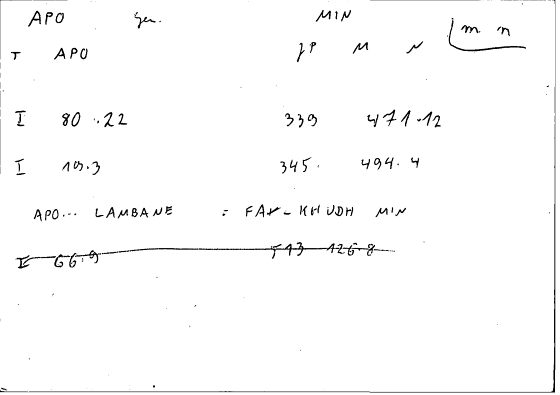 APO gen. MIN
m n
T APO JP M N
I 80.22 339 471.12
I 19.3 345. 494.4
APO... LAMBANE = FAX-KHUDH MIN
I 66.9 T13 126.8